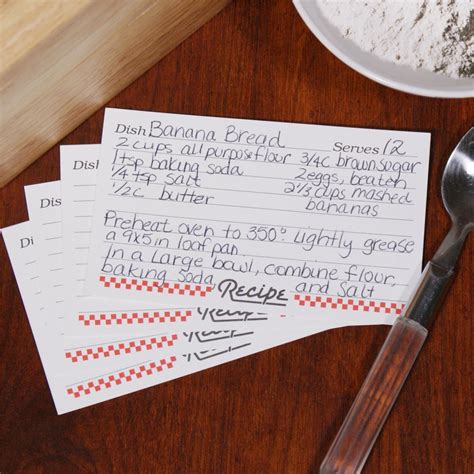 Dish Banana Bread Serves 12
2 cups all purpose flour 3/4c brown sugar
1 tsp baking soda 2 eggs, beaten
1/4 tsp salt 2 1/3 cups mashed
1/2c butter bananas
Preheat oven to 350°. Lightly grease
a 9x5 in loaf pan.
In a large bowl, combine flour,
baking soda Recipe and salt
Dish
Dish
Dish
Recipe
Recipe
Recipe